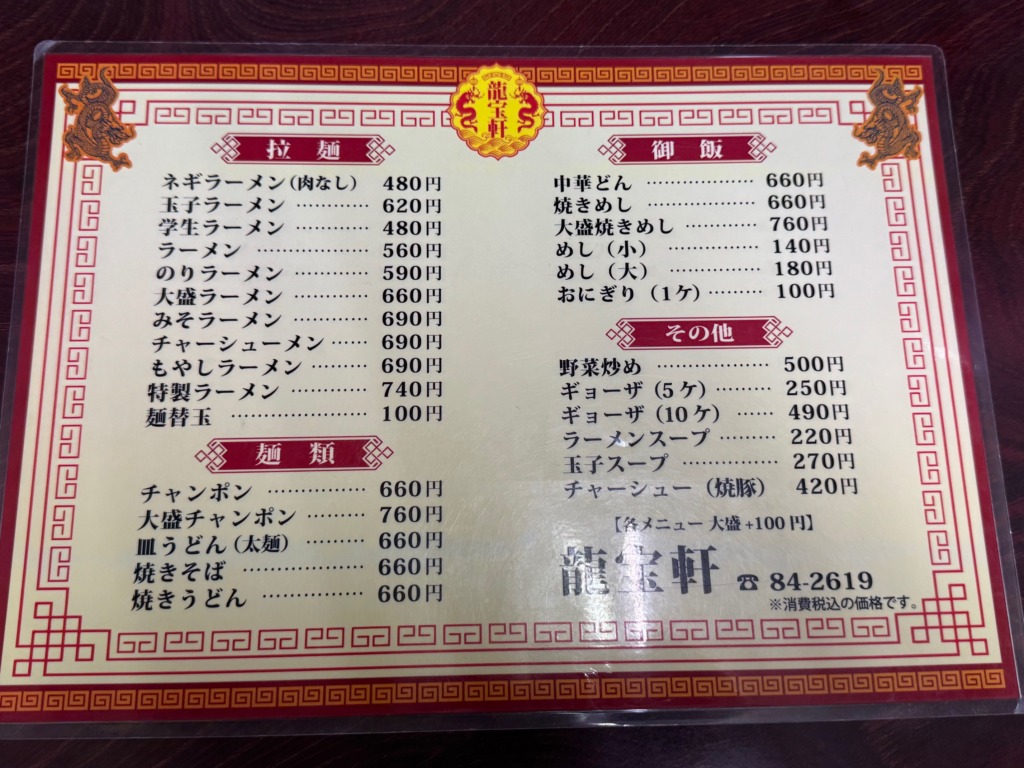 龍宝軒
拉麺
ネギラーメン(肉なし) 480円
玉子ラーメン ………… 620円
学生ラーメン ………… 480円
ラーメン ……………… 560円
のりラーメン ………… 590円
大盛ラーメン ………… 660円
みそラーメン ………… 690円
チャーシューメン …… 690円
もやしラーメン ……… 690円
特製ラーメン ………… 740円
麺替玉 ………………… 100円
麺類
チャンポン …………… 660円
大盛チャンポン ……… 760円
皿うどん(太麺) ……… 660円
焼きそば ……………… 660円
焼きうどん …………… 660円
御飯
中華どん ……………… 660円
焼きめし ……………… 660円
大盛焼きめし ………… 760円
めし(小) ……………… 140円
めし(大) ……………… 180円
おにぎり(1ケ) ……… 100円
その他
野菜炒め ……………… 500円
ギョーザ(5ケ) ……… 250円
ギョーザ(10ケ) …… 490円
ラーメンスープ ……… 220円
玉子スープ …………… 270円
チャーシュー(焼豚) 420円
【各メニュー 大盛+100円】
龍宝軒 ☎ 84-2619
※消費税込の価格です。